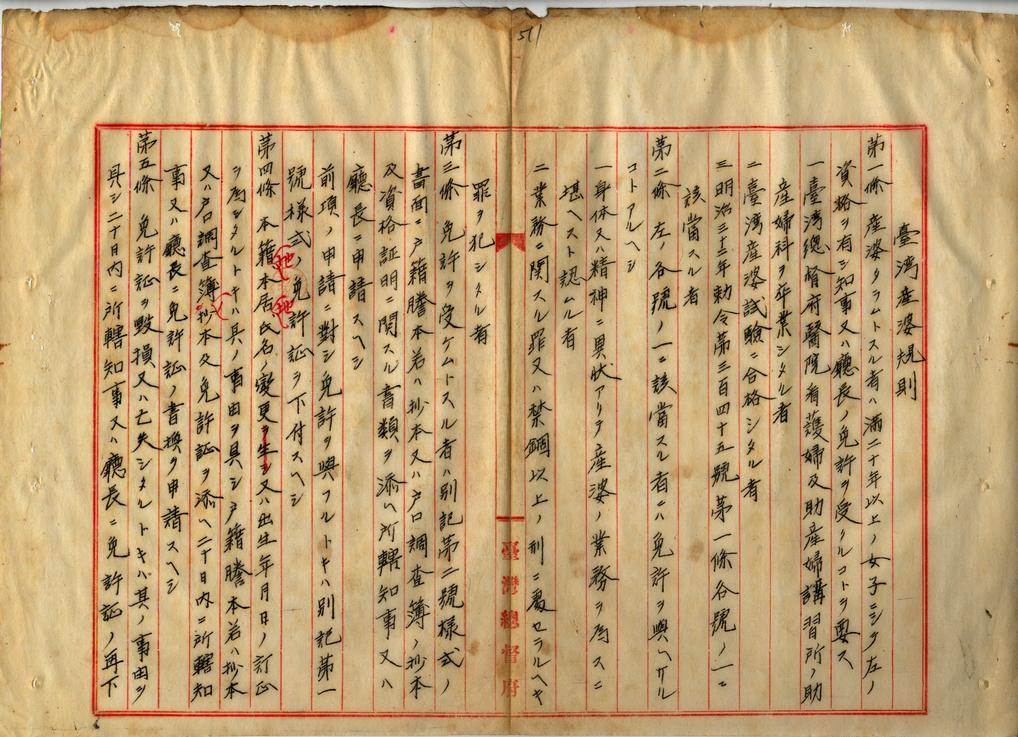 511
臺湾産婆規則
第一條 産婆タラムトスル者ハ満二十年以上ノ女子ニシテ左ノ
資格ヲ有シ知事又ハ廳長ノ免許ヲ受クルコトヲ要ス
一臺湾總督府醫院看護婦及助産婦講習所ノ助
産婦科ヲ卒業シタル者
二臺湾産婆試驗ニ合格シタル者
三明治三十二年勅令第三百四十五號第一條各號ノ一ニ
該當スル者
第二條 左ノ各號ノ一ニ該當スル者ニハ免許ヲ與ヘサル
コトアルヘシ
一身体又ハ精神ニ異狀アリテ産婆ノ業務ヲ為スニ
堪ヘスト認ムル者
二業務ニ関スル罪又ハ禁錮以上ノ刑ニ處セラルヘキ
臺灣總督府
罪ヲ犯シタル者
第三條 免許ヲ受ケムトスル者ハ別記第二號樣式ノ
書面ニ戸籍謄本若ハ抄本又ハ戸口調査簿ノ抄本
及資格証明ニ関スル書類ヲ添ヘ所轄知事又ハ
廳長ニ申請スヘシ
前項ノ申請ニ對シ免許ヲ與フルトキハ別記第一
號樣式ノ免許証ヲ下付スヘシ
第四條 本籍本居氏名ノ變更ヲ生シ又ハ出生年月日ノ訂正
ヲ為シタルトキハ其ノ事由ヲ具シ戸籍謄本若ハ抄本
又ハ戸口調査簿抄本及免許証ヲ添ヘ二十日内ニ所轄知
事又ハ廳長ニ免許証ノ書換ヲ申請スヘシ
第五條 免許証ヲ毀損又ハ亡失シタルトキハ其ノ事由ヲ
具シ二十日内ニ所轄知事又ハ廳長ニ免許証ノ再下